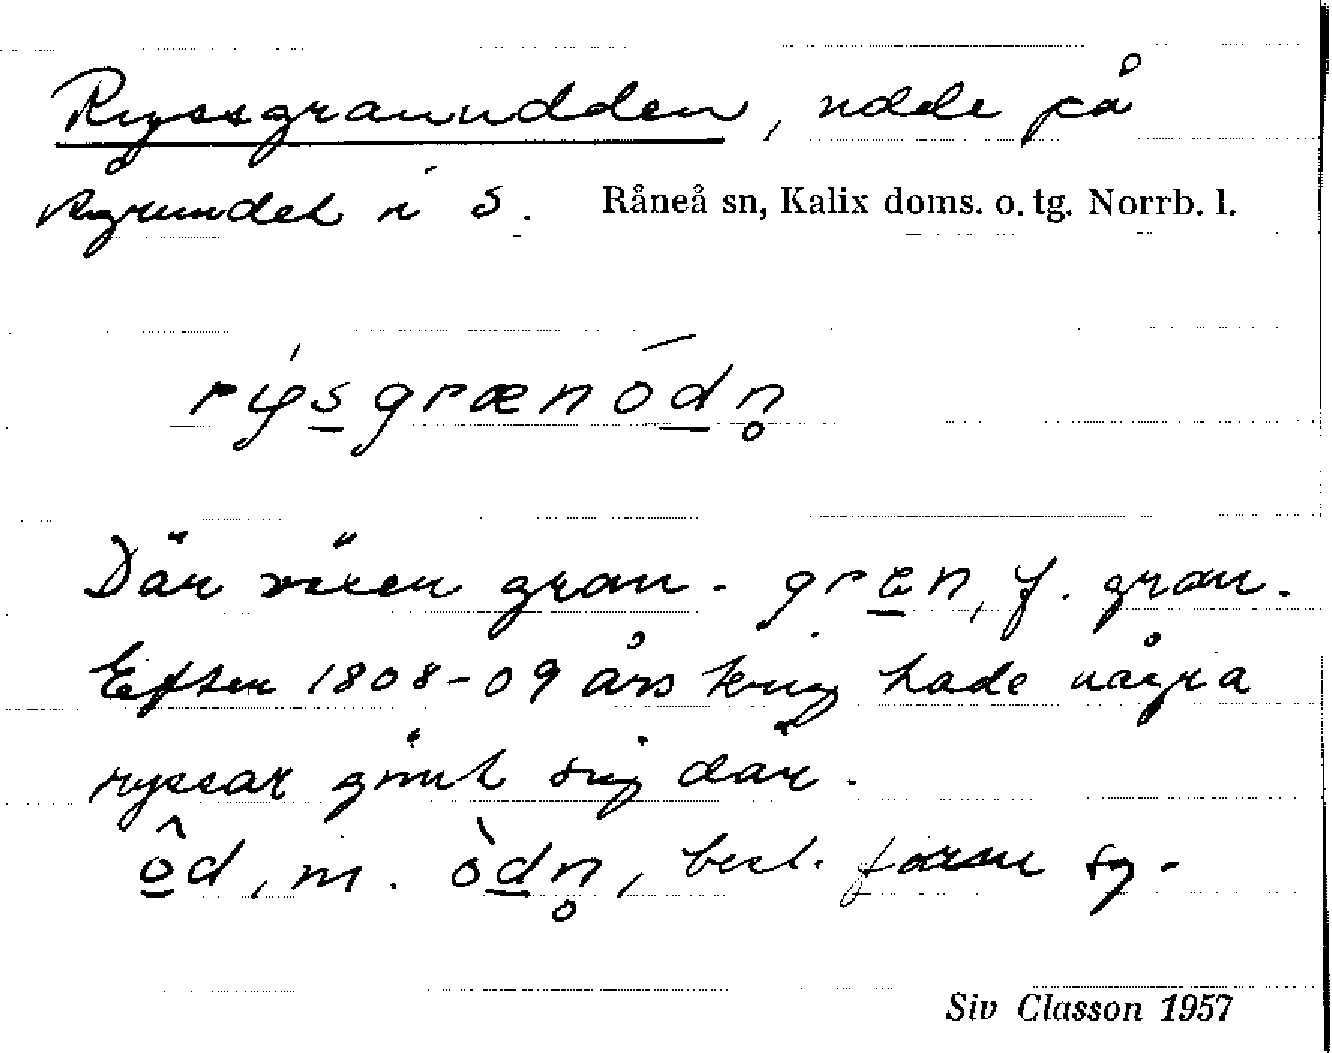 Ryssgranudden, udde på
Rgrundet i S. Råneå sn, Kalix doms. o. tg. Norrb. l.
ry̍s̲grænód̲n̥
Där växer gran. græ̲n, f. gran.
Efter 1808-09 års krig hade några
ryssar gömt sig där.
ô̲d, m. òd̲n̥, best. form sg.
Siv Classon 1957